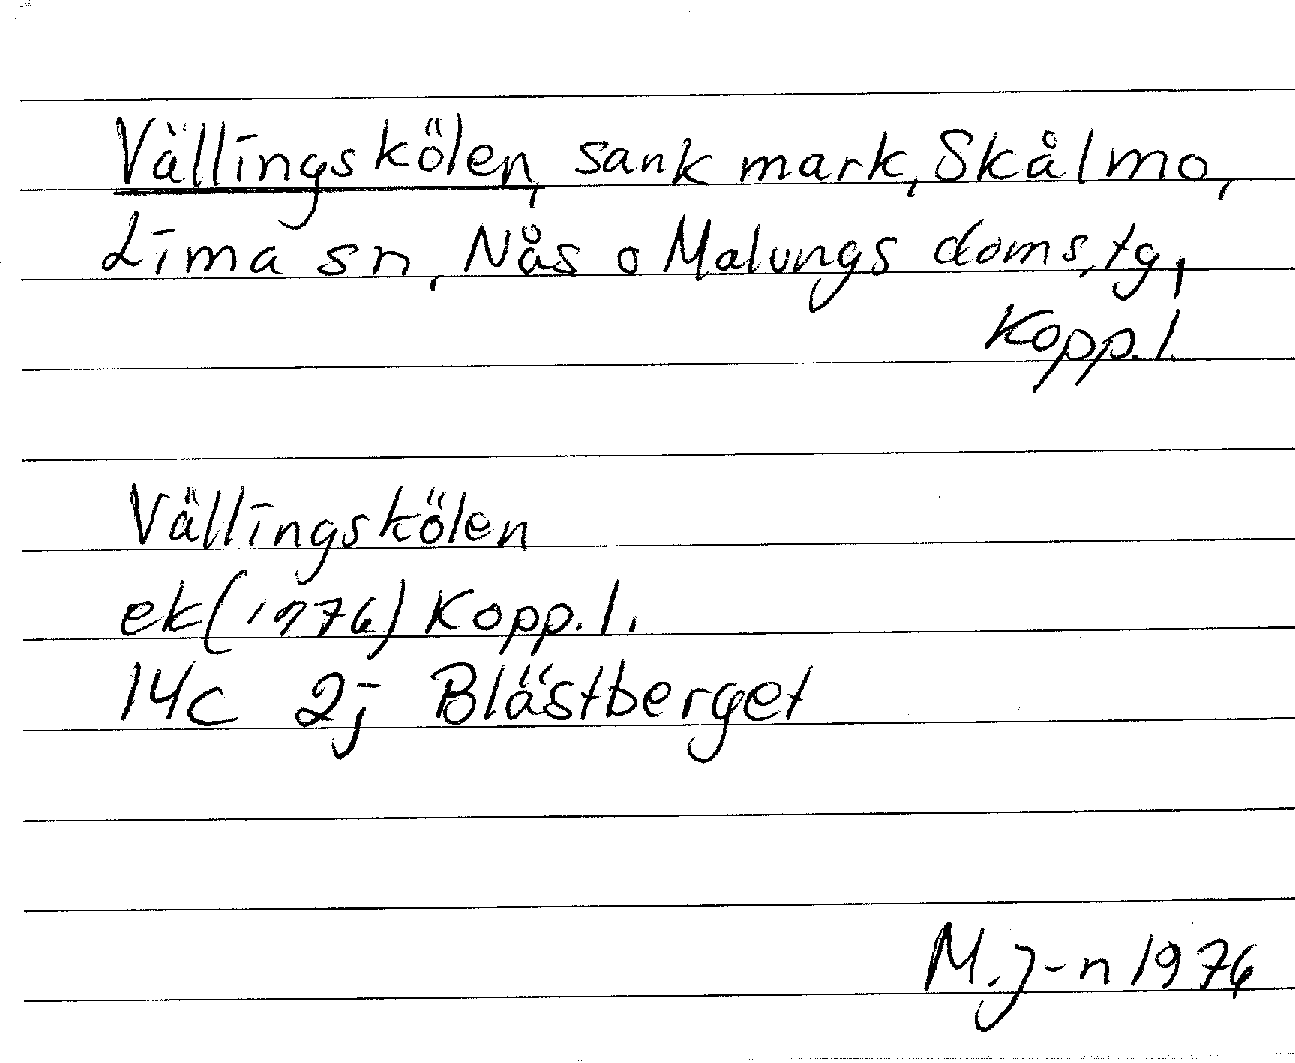 Vällingskölen, sank mark, Skålmo,
Lima sn, Nås o Malungs doms.tg,
Kopp.l.
Vällingskölen
ek (1976) Kopp.l.
14c 2j Blästberget
M.J-n 1976